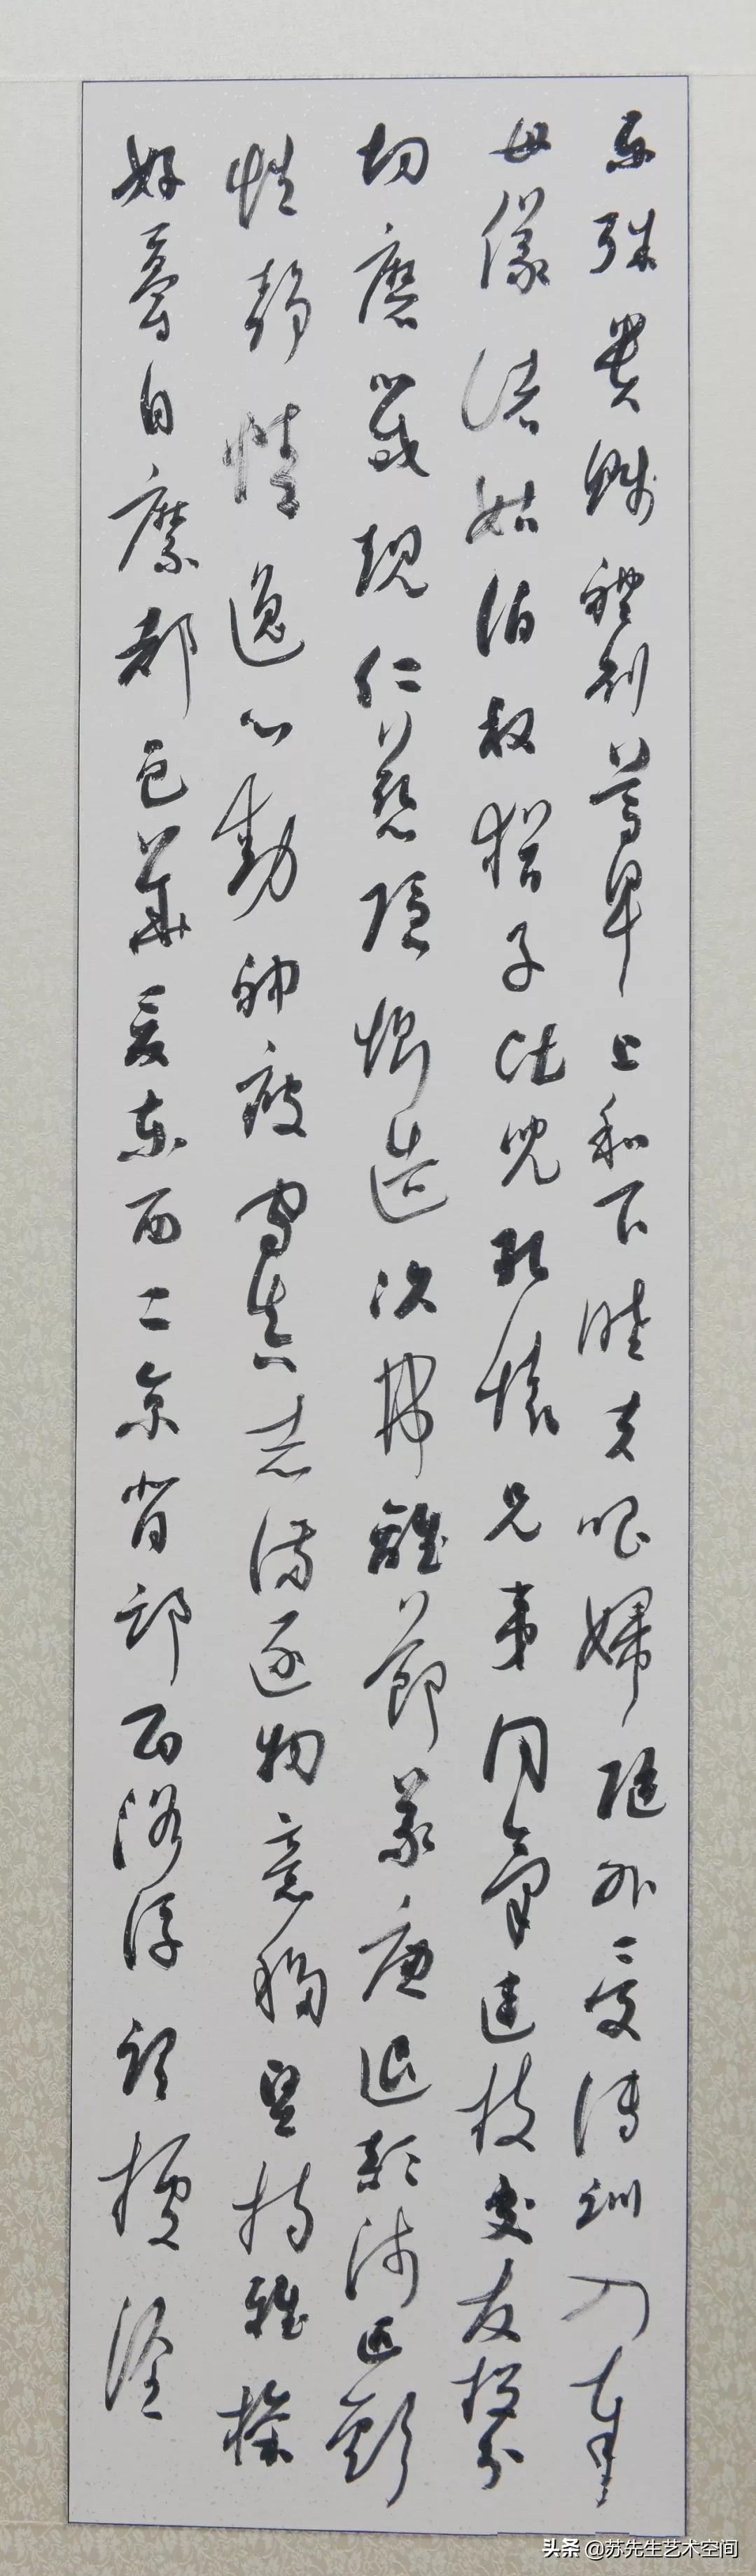 樂殊貴賤禮別尊卑上和下睦夫唱婦隨外受傅訓入奉
母儀諸姑伯叔猶子比兒孔懷兄弟同氣連枝交友投分
切磨箴規仁慈隱惻造次弗離節義廉退顛沛匪虧
性靜情逸心動神疲守真志滿逐物意移堅持雅操
好爵自縻都邑華夏東西二京背邙面洛浮渭據涇
头条 @苏先生艺术空间